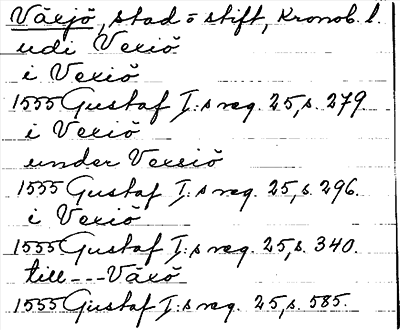 Växjö, stad o stift, Kronob. l.
udi Vexiö
i Vexiö
1555 Gustaf I:s reg. 25, s. 279
i Vexiö
under Vexsiö
1555 Gustaf I:s reg. 25, s. 296.
i Vexiö
1555 Gustaf I:s reg. 25, s. 340.
till --- Växö
1555 Gustaf I:s reg. 25, s. 585.